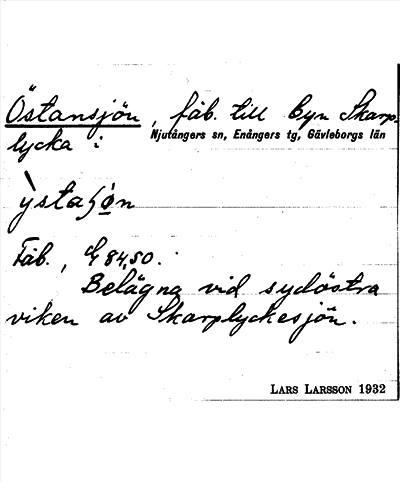 Östansjön, fäb. till byn Skarp-
Njutångers sn, Enångers tg, Gävleborgs län
lycka:
Fäb., 84,50.
Belägna vid sydöstra
viken av Skarplyckesjön.
LARS LARSSON 1932